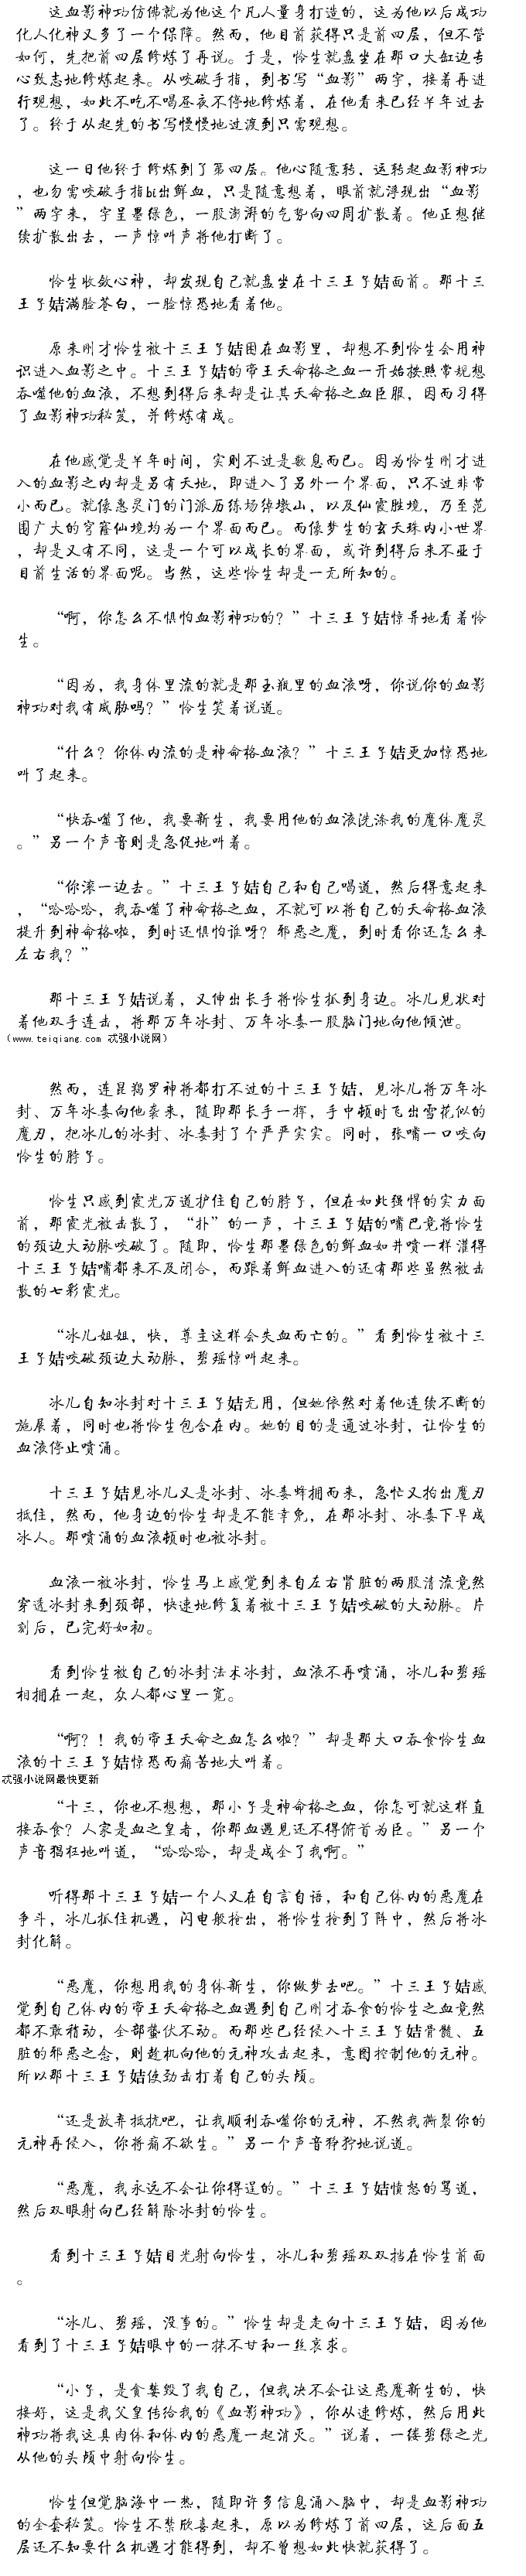 这血影神功仿佛就为他这个凡人量身打造的，这为他以后成功
化人化神又多了一个保障。然而，他目前获得只是前四层，但不管
如何，先把前四层修炼了再说。于是，怜生就盘坐在那口大缸边专
心致志地修炼起来。从咬破手指，到书写“血影”两字，接着再进
行观想，如此不吃不喝昼夜不停地修炼着，在他看来已经半年过去
了。终于从起先的书写慢慢地过渡到只需观想。
这一日他终于修炼到了第四层。他心随意转，运转起血影神功
，也勿需咬破手指bi出鲜血，只是随意想着，眼前就浮现出“血影
”两字来，字呈墨绿色，一股澎湃的气势向四周扩散着。他正想继
续扩散出去，一声惊叫声将他打断了。
怜生收敛心神，却发现自己就盘坐在十三王子姞面前。那十三
王子姞满脸苍白，一脸惊恐地看着他。
原来刚才怜生被十三王子姞困在血影里，却想不到怜生会用神
识进入血影之中。十三王子姞的帝王天命格之血一开始按照常规想
吞噬他的血液，不想到得后来却是让其天命格之血臣服，因而习得
了血影神功秘笈，并修炼有成。
在他感觉是半年时间，实则不过是数息而已。因为怜生刚才进
入的血影之内却是另有天地，即进入了另外一个界面，只不过非常
小而已。就像惠灵门的门派历练场绰墩山，以及仙霞胜境，乃至范
围广大的穹窿仙境均为一个界面而已。而像梦生的玄天珠内小世界
，却是又有不同，这是一个可以成长的界面，或许到得后来不亚于
目前生活的界面呢。当然，这些怜生却是一无所知的。
“啊，你怎么不惧怕血影神功的？”十三王子姞惊异地看着怜
生。
“因为，我身体里流的就是那玉瓶里的血液呀，你说你的血影
神功对我有威胁吗？”怜生笑着说道。
“什么？你体内流的是神命格血液？”十三王子姞更加惊恐地
叫了起来。
“快吞噬了他，我要新生，我要用他的血液洗涤我的魔体魔灵
。”另一个声音则是急促地叫着。
“你滚一边去。”十三王子姞自己和自己喝道，然后得意起来
，“哈哈哈，我吞噬了神命格之血，不就可以将自己的天命格血液
提升到神命格啦，到时还惧怕谁呀？邪恶之魔，到时看你还怎么来
左右我？”
那十三王子姞说着，又伸出长手将怜生抓到身边。冰儿见状对
着他双手连击，将那万年冰封、万年冰萎一股脑门地向他倾泄。
（www.teiqiang.com 忒强小说网）
然而，连昆鸡罗神将都打不过的十三王子姞，见冰儿将万年冰
封、万年冰萎向他袭来，随即那长手一挥，手中顿时飞出雪花似的
魔刃，把冰儿的冰封、冰萎封了个严严实实。同时，张嘴一口咬向
怜生的脖子。
怜生只感到霞光万道护住自己的脖子，但在如此强悍的实力面
前，那霞光被击散了，“扑”的一声，十三王子姞的嘴巴竟将怜生
的颈边大动脉咬破了。随即，怜生那墨绿色的鲜血如井喷一样灌得
十三王子姞嘴都来不及闭合，而跟着鲜血进入的还有那些虽然被击
散的七彩霞光。
“冰儿姐姐，快，尊主这样会失血而亡的。”看到怜生被十三
王子姞咬破颈边大动脉，碧瑶惊叫起来。
冰儿自知冰封对十三王子姞无用，但她依然对着他连续不断的
施展着，同时也将怜生包含在内。她的目的是通过冰封，让怜生的
血液停止喷涌。
十三王子姞见冰儿又是冰封、冰萎蜂拥而来，急忙又抬出魔刃
抵住，然而，他身边的怜生却是不能幸免，在那冰封、冰萎下早成
冰人。那喷涌的血液顿时也被冰封。
血液一被冰封，怜生马上感觉到来自左右肾脏的两股清流竟然
穿透冰封来到颈部，快速地修复着被十三王子姞咬破的大动脉。片
刻后，已完好如初。
看到怜生被自己的冰封法术冰封，血液不再喷涌，冰儿和碧瑶
相拥在一起，众人都心里一宽。
“啊？！我的帝王天命之血怎么啦？”却是那大口吞食怜生血
液的十三王子姞惊恐而痛苦地大叫着。
忒强小说网最快更新
“十三，你也不想想，那小子是神命格之血，你怎可就这样直
接吞食？人家是血之皇者，你那血遇见还不得俯首为臣。”另一个
声音猖狂地叫道，“哈哈哈，却是成全了我啊。”
听得那十三王子姞一个人又在自言自语，和自己体内的恶魔在
争斗，冰儿抓住机遇，闪电般抢出，将怜生抢到了阵中，然后将冰
封化解。
“恶魔，你想用我的身体新生，你做梦去吧。”十三王子姞感
觉到自己体内的帝王天命格之血遇到自己刚才吞食的怜生之血竟然
都不敢稍动，全部蛰伏不动。而那些已经侵入十三王子姞骨髓、五
脏的邪恶之念，则趁机向他的元神攻击起来，意图控制他的元神。
所以那十三王子姞使劲击打着自己的头颅。
“还是放弃抵抗吧，让我顺利吞噬你的元神，不然我撕裂你的
元神再侵入，你将痛不欲生。”另一个声音狞狞地说道。
“恶魔，我永远不会让你得逞的。”十三王子姞愤怒的骂道，
然后双眼射向已经解除冰封的怜生。
看到十三王子姞目光射向怜生，冰儿和碧瑶双双挡在怜生前面
。
“冰儿、碧瑶，没事的。”怜生却是走向十三王子姞，因为他
看到了十三王子姞眼中的一抹不甘和一丝哀求。
“小子，是贪婪毁了我自己，但我决不会让这恶魔新生的，快
接好，这是我父皇传给我的《血影神功》，你从速修炼，然后用此
神功将我这具肉体和体内的恶魔一起消灭。”说着，一缕碧绿之光
从他的头颅中射向怜生。
怜生但觉脑海中一热，随即许多信息涌入脑中，却是血影神功
的全套秘笈。怜生不禁欣喜起来，原以为修炼了前四层，这后面五
层还不知要什么机遇才能得到，却不曾想如此快就获得了。